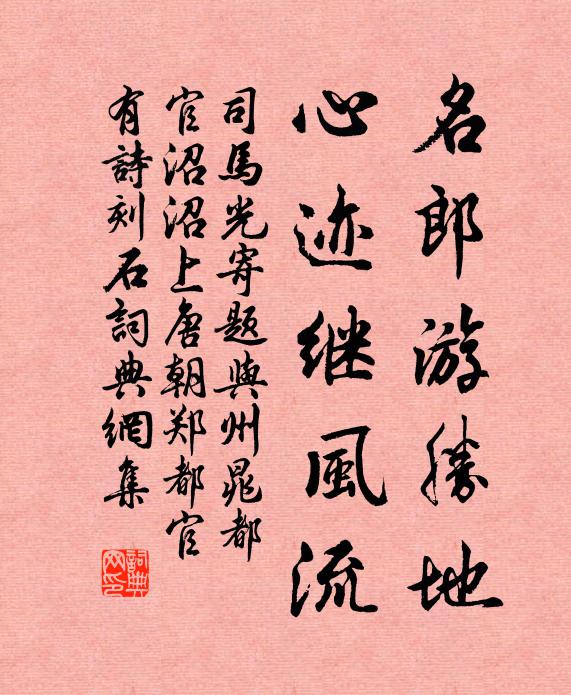 名郎游勝地
心迹继風流
司馬光寄題興州晁都
官沼沼上唐朝郑都官
有詩刻石詞典網集
詞典网印